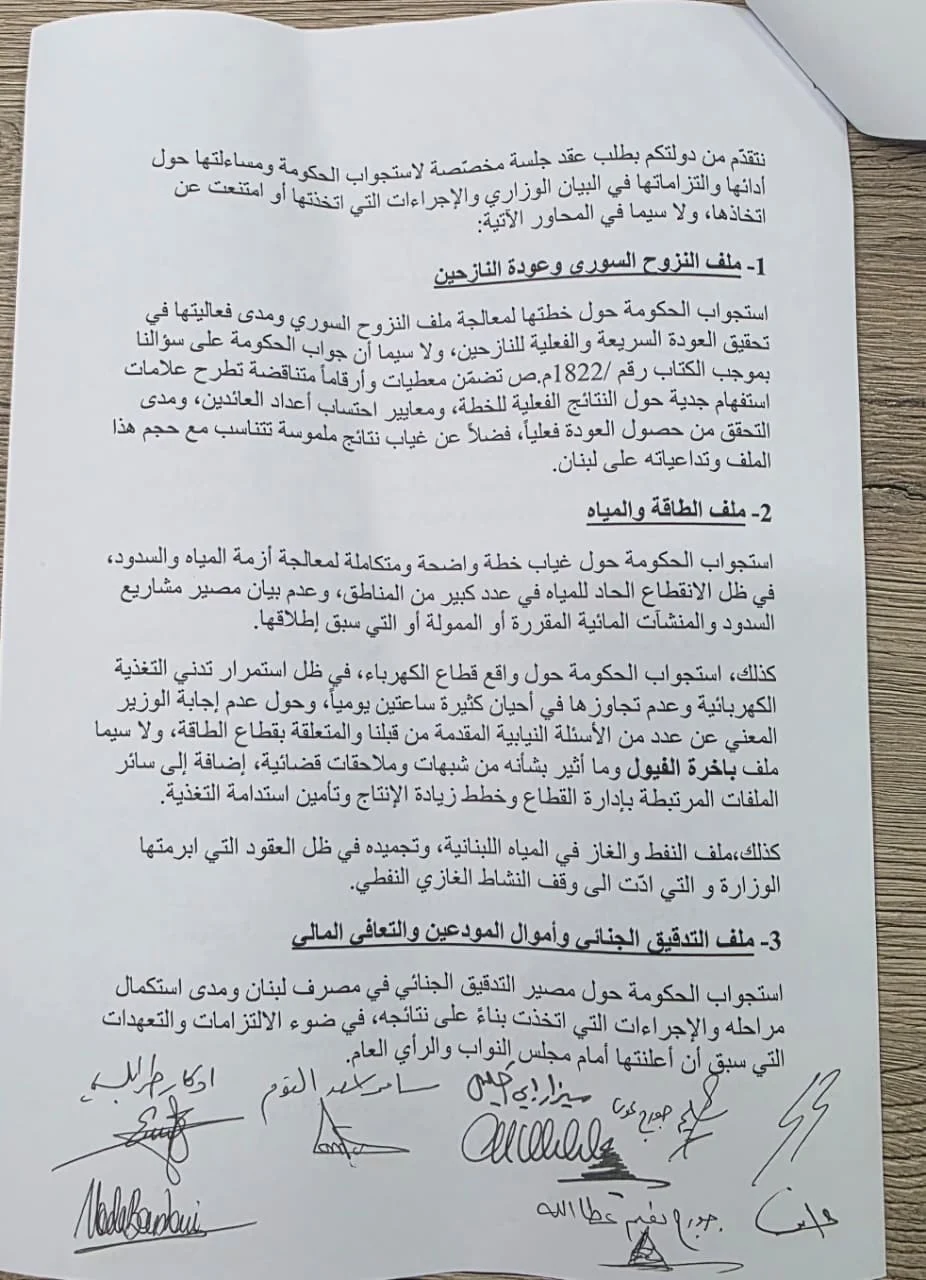 نتقدّم من دولتكم بطلب عقد جلسة مخصّصة لاستجواب الحكومة ومساءلتها حول
أدائها والتزاماتها في البيان الوزاري والإجراءات التي اتخذتها أو امتنعت عن
اتخاذها، ولا سيما في المحاور الآتية:
1- ملف النزوح السوري وعودة النازحين
استجواب الحكومة حول خطتها لمعالجة ملف النزوح السوري ومدى فعاليتها في
تحقيق العودة السريعة والفعلية للنازحين، ولا سيما أن جواب الحكومة على سؤالنا
بموجب الكتاب رقم /1822م.ص تضمّن معطيات وأرقاماً متناقضة تطرح علامات
استفهام جدية حول النتائج الفعلية للخطة، ومعايير احتساب أعداد العائدين، ومدى
التحقق من حصول العودة فعلياً، فضلاً عن غياب نتائج ملموسة تتناسب مع حجم هذا
الملف وتداعياته على لبنان.
2- ملف الطاقة والمياه
استجواب الحكومة حول غياب خطة واضحة ومتكاملة لمعالجة أزمة المياه والسدود،
في ظل الانقطاع الحاد للمياه في عدد كبير من المناطق، وعدم بيان مصير مشاريع
السدود والمنشآت المائية المقررة أو الممولة أو التي سبق إطلاقها.
كذلك، استجواب الحكومة حول واقع قطاع الكهرباء، في ظل استمرار تدني التغذية
الكهربائية وعدم تجاوزها في أحيان كثيرة ساعتين يومياً، وحول عدم إجابة الوزير
المعني عن عدد من الأسئلة النيابية المقدمة من قبلنا والمتعلقة بقطاع الطاقة، ولا سيما
ملف باخرة الفيول وما أثير بشأنه من شبهات وملاحقات قضائية، إضافة إلى سائر
الملفات المرتبطة بإدارة القطاع وخطط زيادة الإنتاج وتأمين استدامة التغذية.
كذلك،ملف النفط والغاز في المياه اللبنانية، وتجميده في ظل العقود التي ابرمتها
الوزارة و التي ادّت الى وقف النشاط الغازي النفطي.
3- ملف التدقيق الجنائي وأموال المودعين والتعافي المالي
استجواب الحكومة حول مصير التدقيق الجنائي في مصرف لبنان ومدى استكمال
مراحله والإجراءات التي اتخذت بناءً على نتائجه، في ضوء الالتزامات والتعهدات
التي سبق أن أعلنتها أمام مجلس النواب والرأي العام.
سيزار ابي خليل
جورج نعيم عطا الله